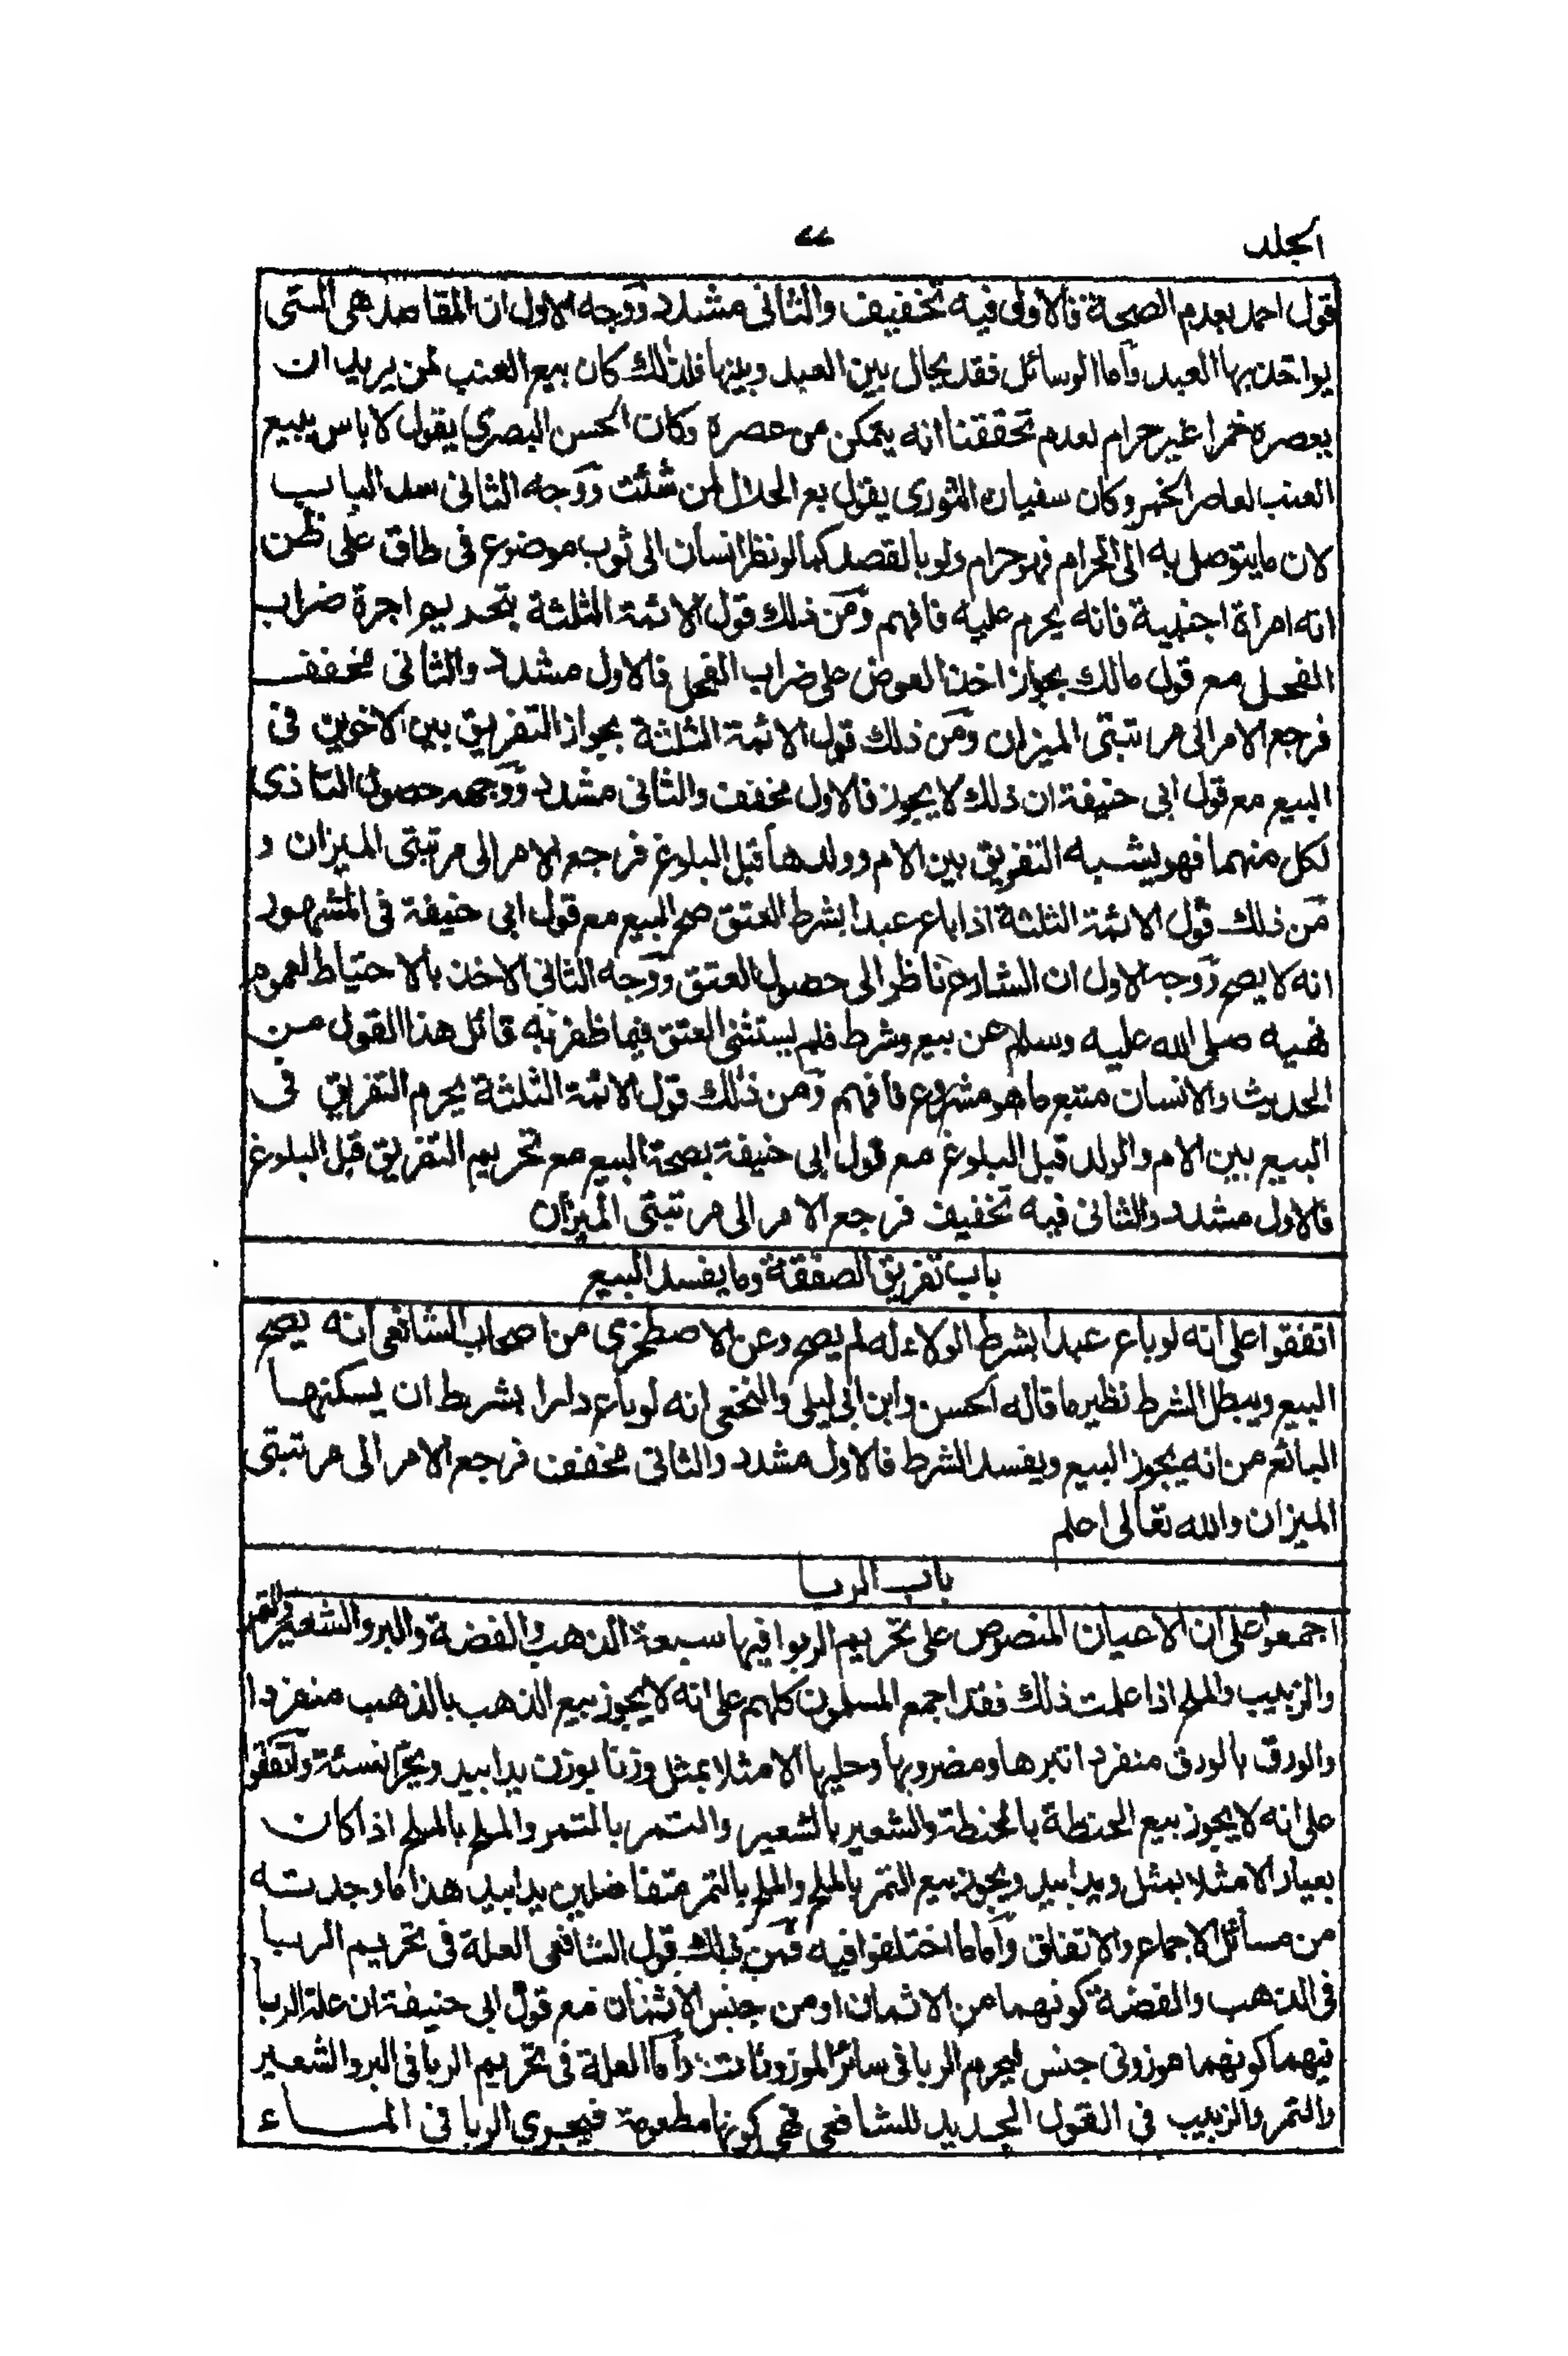 الجلد
٤٤
قول احمد بعدم الصحة فالاول فيه تخفيف والثانى مشدد ووجه الاول ان المقاصد هى التى
يواخذ بها العبد واما الوسائل فقد يحال بين العبد وبينها فلذلك كان بيع العنب لمن يريد ان
يعصره خمرا غير حرام لعدم تحققنا انه يتمكن من عصره وكان الحسن البصرى يقول لا باس ببيع
العنب لعاصر الخمر وكان سفيان الثورى يقول بع الحلال لمن شئت ووجه الثانى سد الباب
لان ما يتوصل به الى الحرام فهو حرام ولو بالقصد كما لو نظر انسان الى ثوب موضوع فى طاق على ظن
انه امراة اجنبية فانه يحرم عليه فافهم ومن ذلك قول الائمة الثلثة بتحريم اجرة ضراب
الفحل مع قول مالك بجواز اخذ العوض على ضراب الفحل فالاول مشدد والثانى مخفف
فرجع الامر الى مرتبتى الميزان ومن ذلك قول الائمة الثلثة بجواز التفريق بين الاخوين فى
البيع مع قول ابى حنيفة ان ذلك لا يجوز فالاول مخفف والثانى مشدد ووجهه حصول التاذى
لكل منهما فهو يشبه التفريق بين الام وولدها قبل البلوغ فرجع الامر الى مرتبتى الميزان و
من ذلك قول الائمة الثلثة اذا باع عبدا بشرط العتق صح البيع مع قول ابى حنيفة فى المشهور
انه لا يصح ووجه الاول ان الشارع ناظر الى حصول العتق ووجه الثانى الاخذ بالاحتياط لعموم
نهيه صلى الله عليه وسلم عن بيع وشرط فلم يستثنى العتق فيما ظفر به قائل هذا القول من
الحديث والانسان متبع ما هو مشروع فافهم ومن ذلك قول الائمة الثلثة يحرم التفريق فى
البيع بين الام والولد قبل البلوغ مع قول ابى حنيفة بصحة البيع مع تحريم التفريق قبل البلوغ
فالاول مشدد والثانى فيه تخفيف فرجع الامر الى مرتبتى الميزان
باب تفريق الصفقة وما يفسد البيع
اتفقوا على انه لو باع عبدا بشرط الولاء له لم يصح وعن الاصطخرى من اصحاب الشافعى انه يصح
البيع ويبطل الشرط نظير ما قاله الحسن وابن ابى ليلى والنخعى انه لو باع دارا بشرط ان يسكنها
البائع من انه يجوز البيع ويفسد الشرط فالاول مشدد والثانى مخفف فرجع الامر الى مرتبتى
الميزان والله تعالى اعلم
باب الربا
اجمعوا على ان الاعيان المنصوص على تحريم الربوا فيها سبعة الذهب والفضة والبر والشعير والتمر
والزبيب والملح اذا علمت ذلك فقد اجمع المسلمون كلهم على انه لا يجوز بيع الذهب بالذهب منفردا
والورق بالورق منفردا تبرها ومضروبها وحليها الا مثلا بمثل وزنا بوزن يدا بيد ويحرم نسئة واتفقوا
على انه لا يجوز بيع الحنطة بالحنطة والشعير بالشعير والتمر بالتمر والملح بالملح اذا كان
بعيار الا مثلا بمثل ويدا بيد ويجوز بيع التمر بالملح والملح بالتمر متفاضلين يدا بيد هذا ما وجدته
من مسائل الاجماع والاتفاق واما ما اختلفوا فيه فمن ذلك قول الشافعى العلة فى تحريم الربا
فى الذهب والفضة كونهما من الاثمان او من جنس الاثمان مع قول ابى حنيفة ان علة الربا
فيهما كونهما موزونى جنس ليحرم الربا فى سائر الموزونات واما العلة فى تحريم الربا فى البر والشعير
والتمر والزبيب فى القول الجديد للشافعى فهى كونها مطعومة فيجرى الربا فى الماء